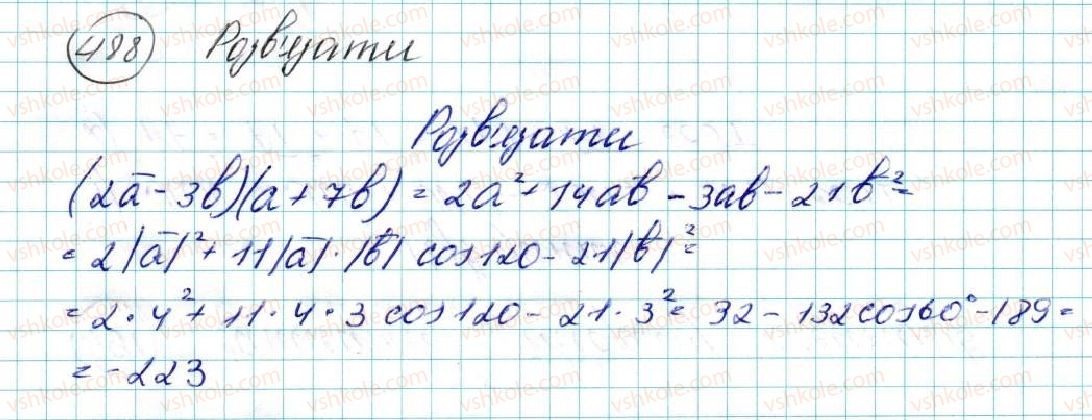 498 Розв'язати
Розв'язати
(2a̅ - 3b)(a + 7b) = 2a² + 14ab - 3ab - 21b² =
= 2|a̅|² + 11|a̅|·|b̅| cos120 - 21|b̅|² =
= 2·4² + 11·4·3 cos120 - 21·3² = 32 - 132cos60° - 189 =
= -223